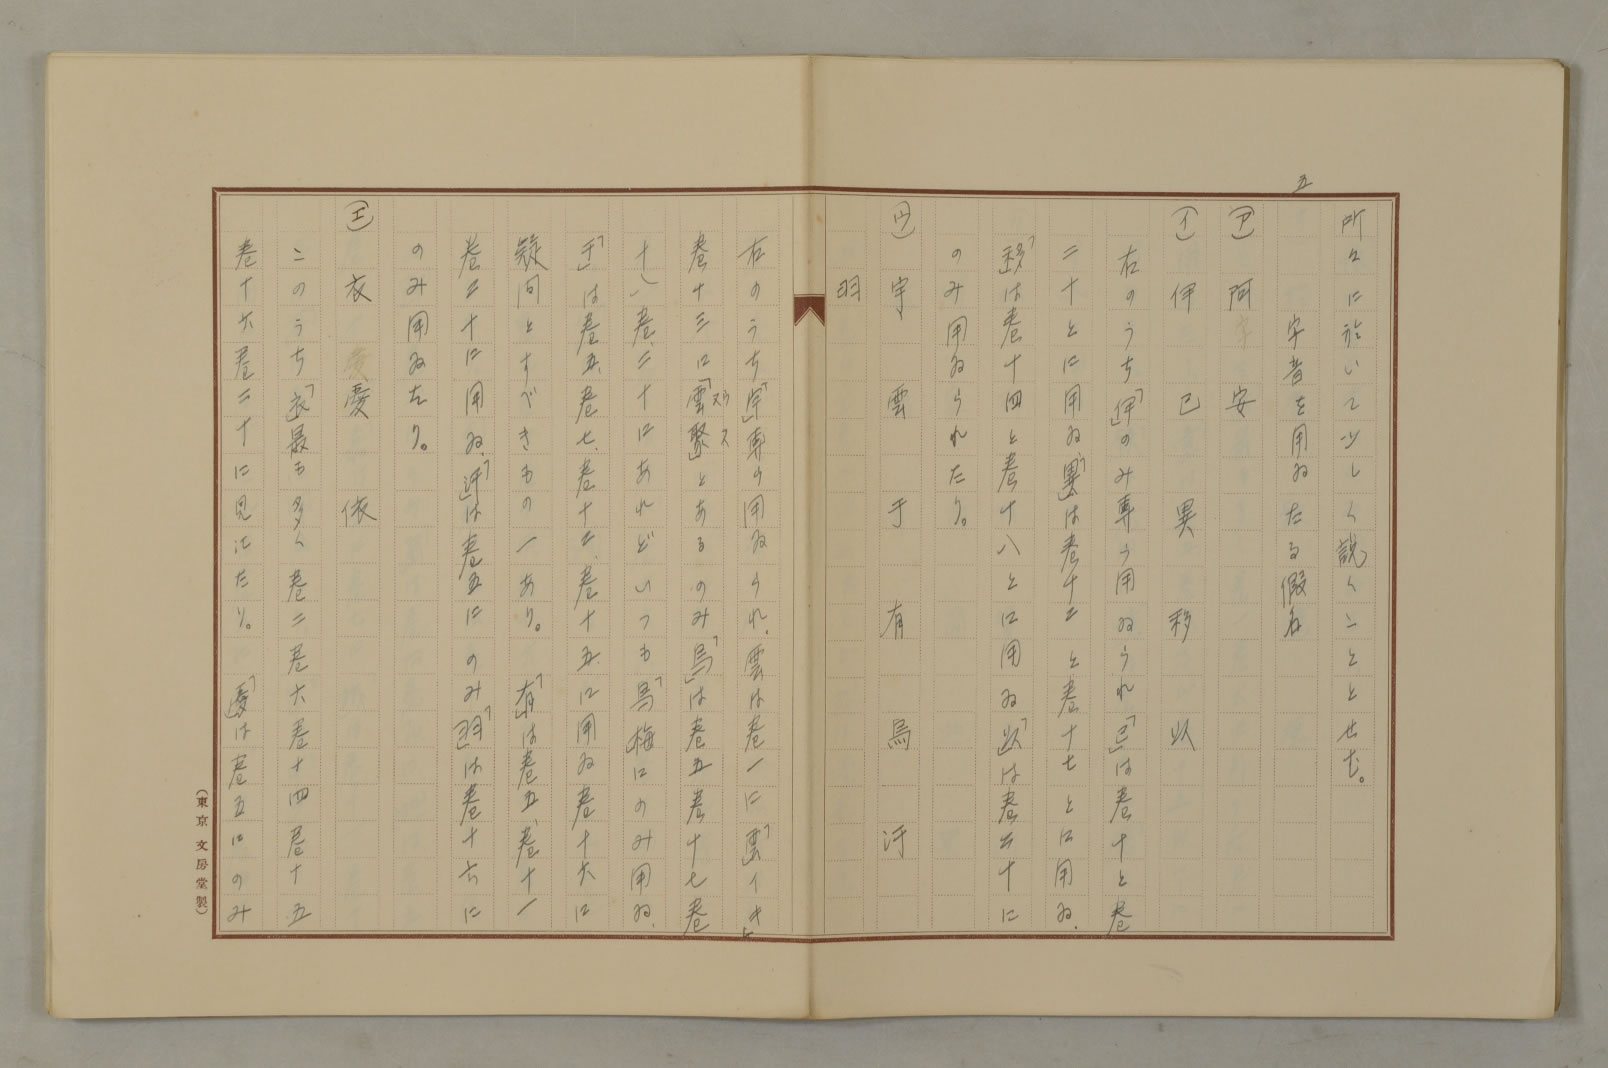 所々に於いて少しく説くこととせむ。
五
字音を用ゐたる假名
(ア) 阿 安
(イ) 伊 已 異 移 以
右のうち「伊」のみ専ら用ゐられ「已」は巻十と巻
二十とに用ゐ、「異」は巻十二と巻十七とに用ゐ、
「移」は巻十四と巻十八とに用ゐ「以」は巻二十に
のみ用ゐられたり。
(ウ) 宇 雲 于 有 烏 汙
羽
右のうち「宇」専ら用ゐられ、雲は巻一に「雲」
巻十三に「雲聚」とあるのみ「烏」は巻五巻十七巻
ウズ
十八、巻二十にあれどいつも「烏梅」にのみ用ゐ、
「于」は巻五、巻七、巻十二、巻十五、に用ゐ巻十六に
疑問とすべきもの一あり。「有」は巻五、巻十一
巻二十に用ゐ、「汙」は巻五にのみ「羽」は巻十六に
のみ用ゐたり。
(エ) 衣 愛 依
このうち「衣」最も多く巻二巻六巻十四巻十五
巻十六巻二十に見えたり。「愛」は巻五にのみ
(東京 文房堂製)